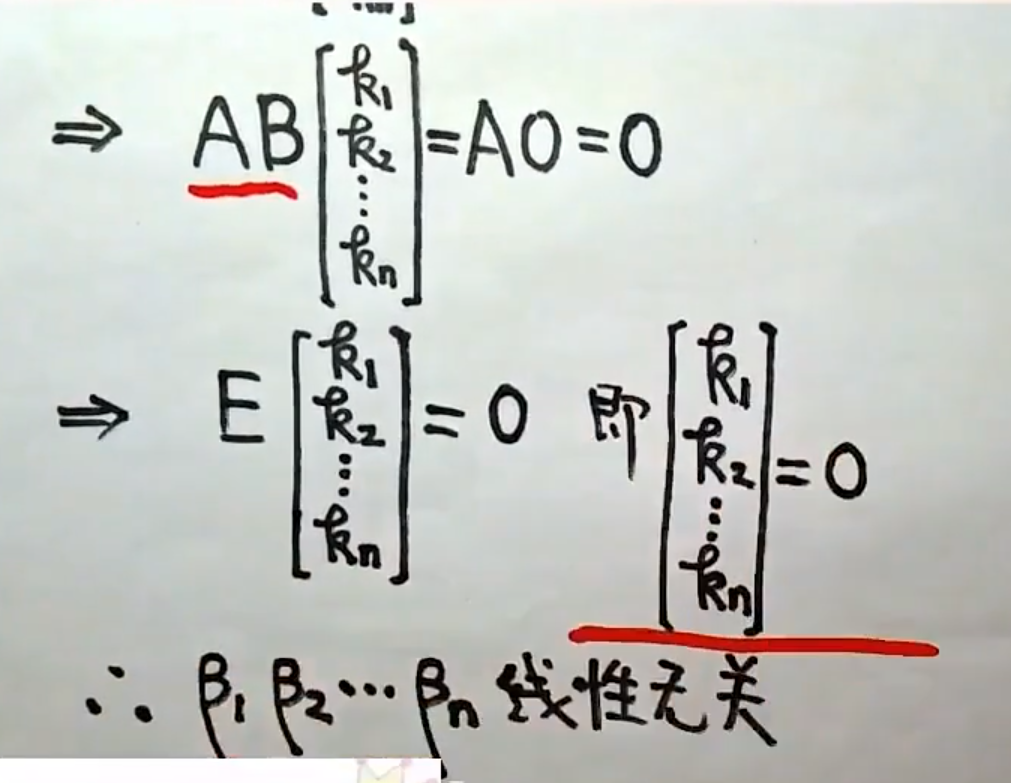 ⇒ AB [k₁ k₂ ⋮ kₙ] = A0 = 0
⇒ E [k₁ k₂ ⋮ kₙ] = 0 即 [k₁ k₂ ⋮ kₙ] = 0
∴ β₁ β₂ ⋯ βₙ 线性无关